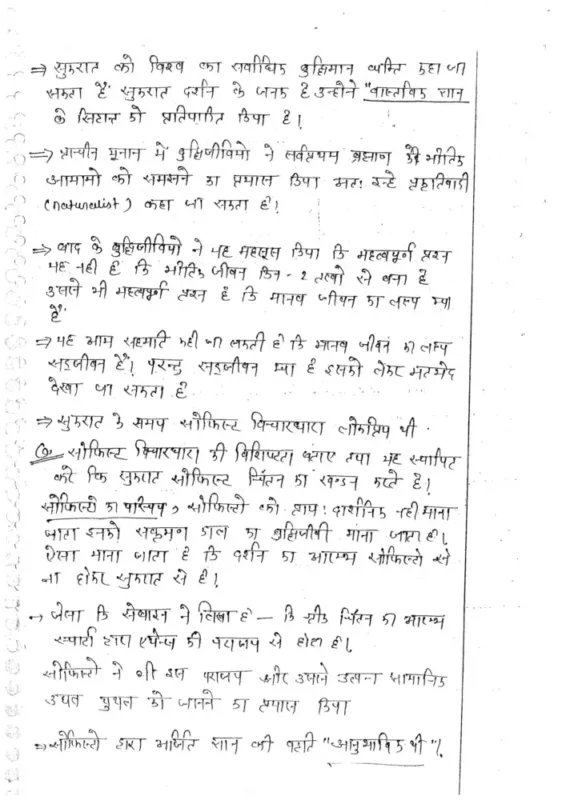 ⇒ सुकरात को विश्व का सर्वाधिक बुद्धिमान व्यक्ति कहा जा
सकता हैं सुकरात दर्शन के जनक है उन्होने "वास्तविक ज्ञान
के सिद्धान्त को प्रतिपादित किया है।
⇒ प्राचीन यूनान में बुद्धिजीवियो ने सर्वप्रथम ब्रह्माण्ड के भौतिक
आयामो को समझने का प्रयास किया अतः इन्हे प्रकृतिवादी
(naturalist) कहा जा सकता है।
⇒ बाद के बुद्धिजीवियो ने यह महसूस किया कि महत्वपूर्ण प्रश्न
यह नही है कि भौतिक जीवन किन-2 तत्वो से बना है
उससे भी महत्वपूर्ण प्रश्न है कि मानव जीवन का लक्ष्य क्या
हैं
⇒ यह आम सहमति कही जा सकती है कि मानव जीवन का लक्ष्य
सद्जीवन हैं। परन्तु सद्जीवन क्या है इसको लेकर मतभेद
देखा जा सकता है
⇒ सुकरात के समय सोफिस्ट विचारधारा लोकप्रिय थी
Q. सोफिस्ट विचारधारा की विशिष्टता बताए तथा यह स्थापित
करे कि सुकरात सोफिस्ट चिंतन का खण्डन करते है।
सोफिस्टो का परिचय, सोफिस्टो को प्रायः दार्शनिक नही माना
जाता इनको संक्रमण काल का बुद्धिजीवी माना जाता है।
ऐसा माना जाता है कि दर्शन का आरम्भ सोफिस्टो से
ना होकर सुकरात से है।
→ जैसा कि सेबाइन ने लिखा है – कि ग्रीक चिंतन का आरम्भ
स्पार्टा द्वारा एथेन्स की पराजय से होता है।
सोफिस्टो ने भी इस पराजय और उससे उत्पन्न सामाजिक
उथल पुथल को जानने का प्रयास किया
⇒ सोफिस्टो द्वारा अर्जित ज्ञान की पद्धति "आनुभाविक थी"।